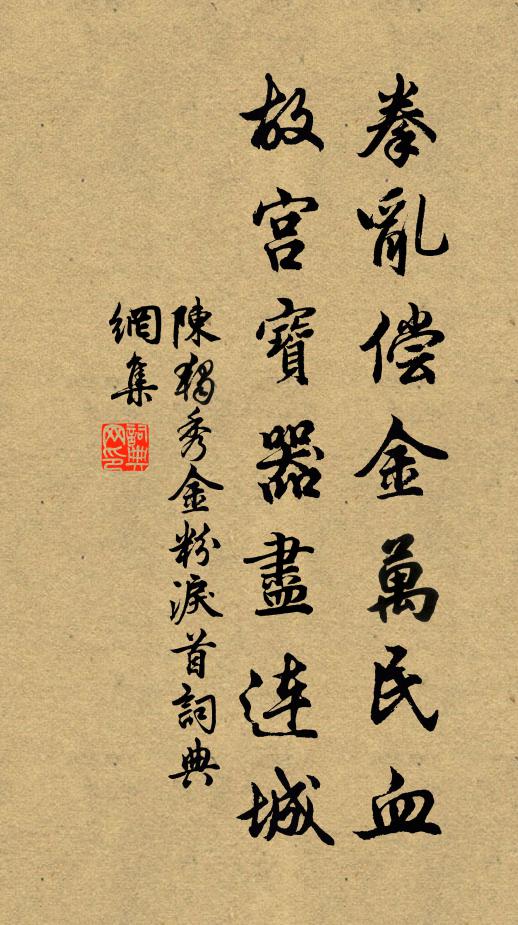 拳亂偿金萬民血
故宫寶器盡連城
陳獨秀金粉淚首詞典
網集
詞典
网印